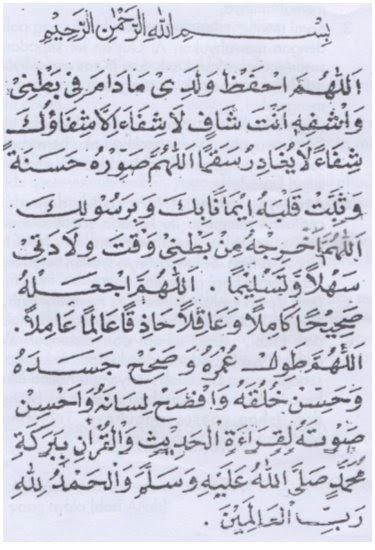 بِسْمِ اللهِ الرَّحْمٰنِ الرَّحِيْمِ
اَللّٰهُمَّ احْفَظْ وَلَدِىْ مَادَامَ فِى بَطْنِىْ
وَاشْفِهِ اَنْتَ شَافٍ لَا شِفَاءَ اِلَّا شِفَاؤُكَ
شِفَاءً لَا يُغَادِرُ سَقَمًا اَللّٰهُمَّ صَوِّرْهُ حَسَنَةً
وَثَبِّتْ قَلْبَهُ اِيْمَانًا بِكَ وَبِرَسُوْلِكَ
اَللّٰهُمَّ اَخْرِجْهُ مِنْ بَطْنِىْ وَقْتَ وِلَادَتِىْ
سَهْلًا وَتَسْلِيْمًا . اَللّٰهُمَّ اجْعَلْهُ
صَحِيْحًا كَامِلًا وَعَاقِلًا حَاذِقًا عَالِمًا عَامِلًا .
اَللّٰهُمَّ طَوِّلْ عُمْرَهُ وَصَحِّحْ جَسَدَهُ
وَحَسِّنْ خُلُقَهُ وَافْضَحْ لِسَانَهُ وَاَحْسِنْ
صَوْتَهُ لِقِرَاءَةِ الْحَدِيْثِ وَالْقُرْاٰنِ بِبَرَكَةِ
مُحَمَّدٍ صَلَّى اللهُ عَلَيْهِ وَسَلَّمَ وَالْحَمْدُ لِلّٰهِ
رَبِّ الْعَالَمِيْنَ .